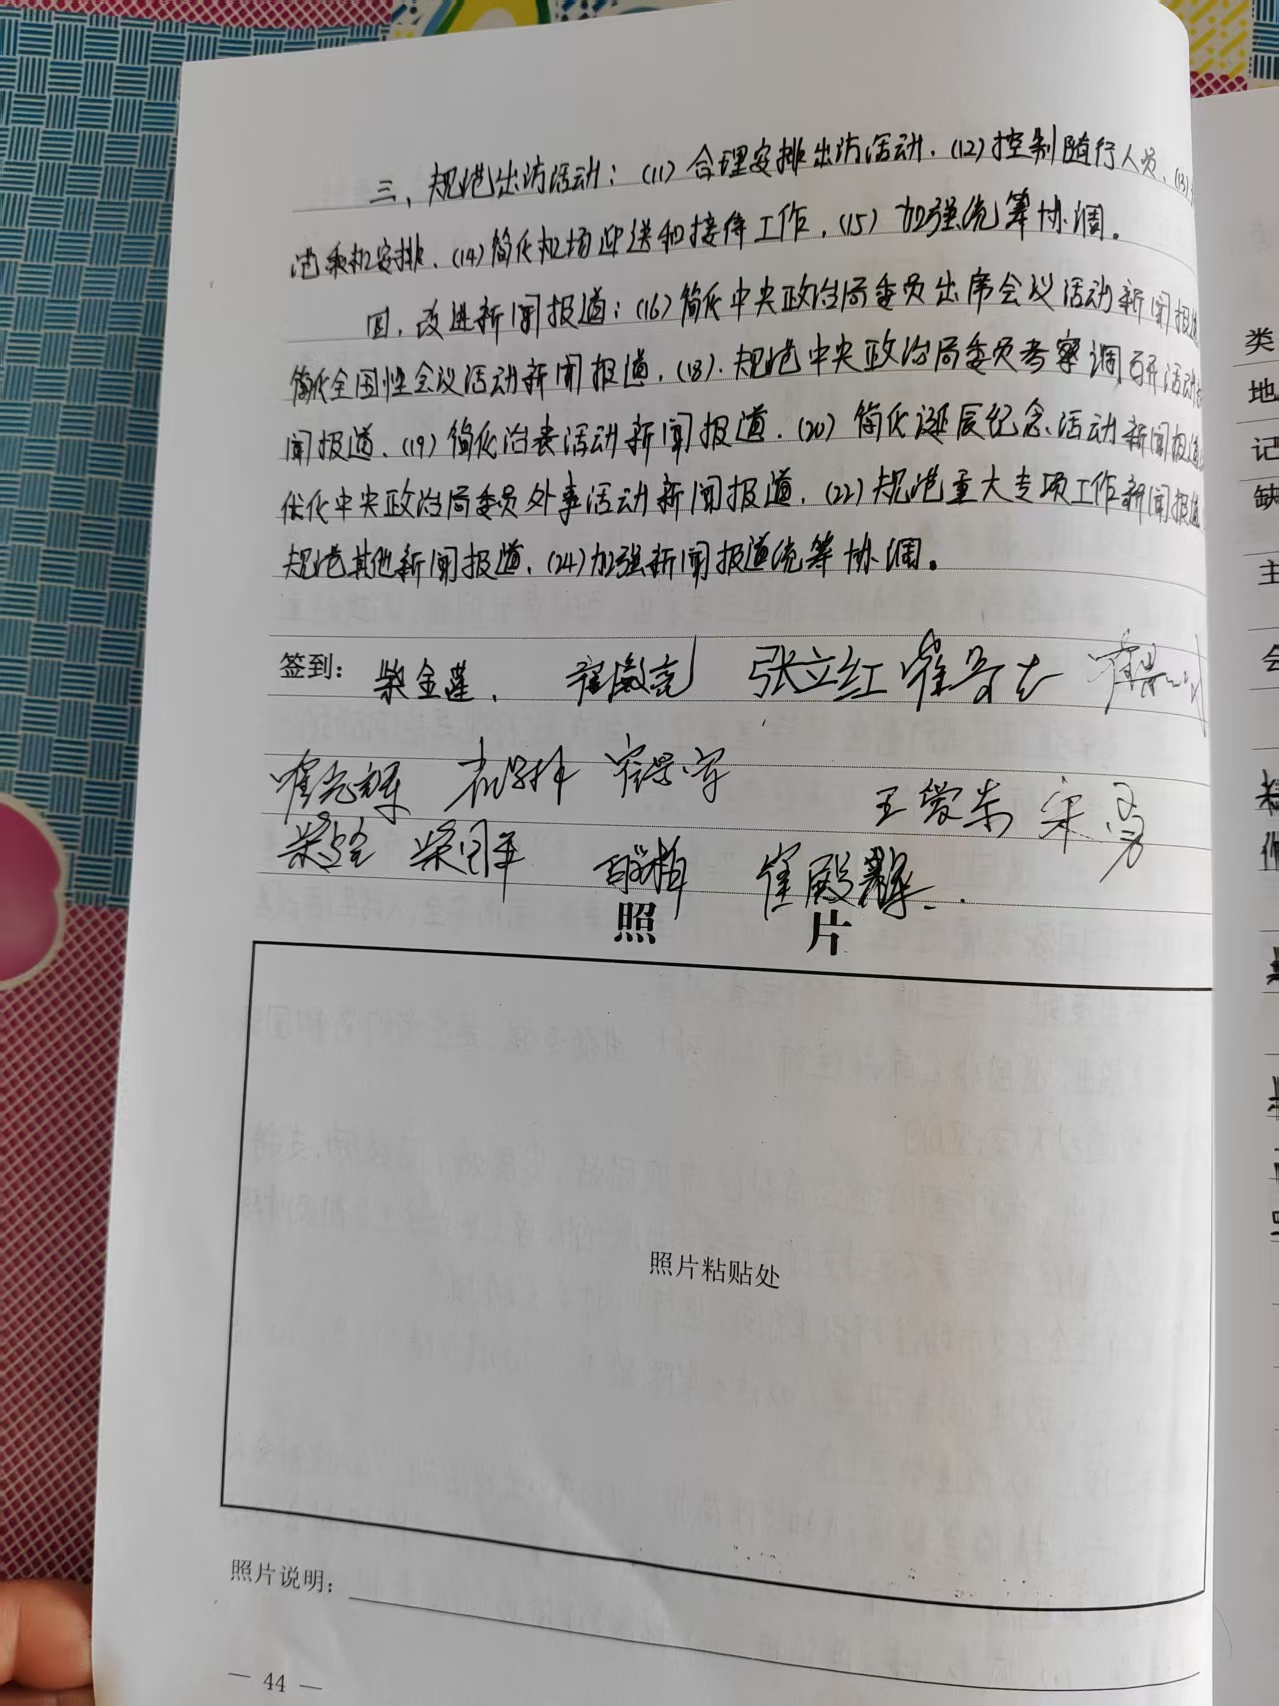 三、规范出访活动：(11)合理安排出访活动.(12)控制随行人员、(13)
范乘机安排、(14)简化机场迎送和接待工作，(15)加强统筹协调。
四、改进新闻报道：(16)简化中央政治局委员出席会议活动新闻报道
简化全国性会议活动新闻报道，(18).规范中央政治局委员考察调研活动
闻报道、(19)简化治丧活动新闻报道.(20)简化诞辰纪念活动新闻报道
优化中央政治局委员外事活动新闻报道，(22)规范重大专项工作新闻报道
规范其他新闻报道、(24)加强新闻报道统筹协调。
签到：柴金莲、 张立红
王爱荣 宋勇
崔殿
照 片
照片粘贴处
照片说明：
— 44 —
类
地
记
缺
主
会